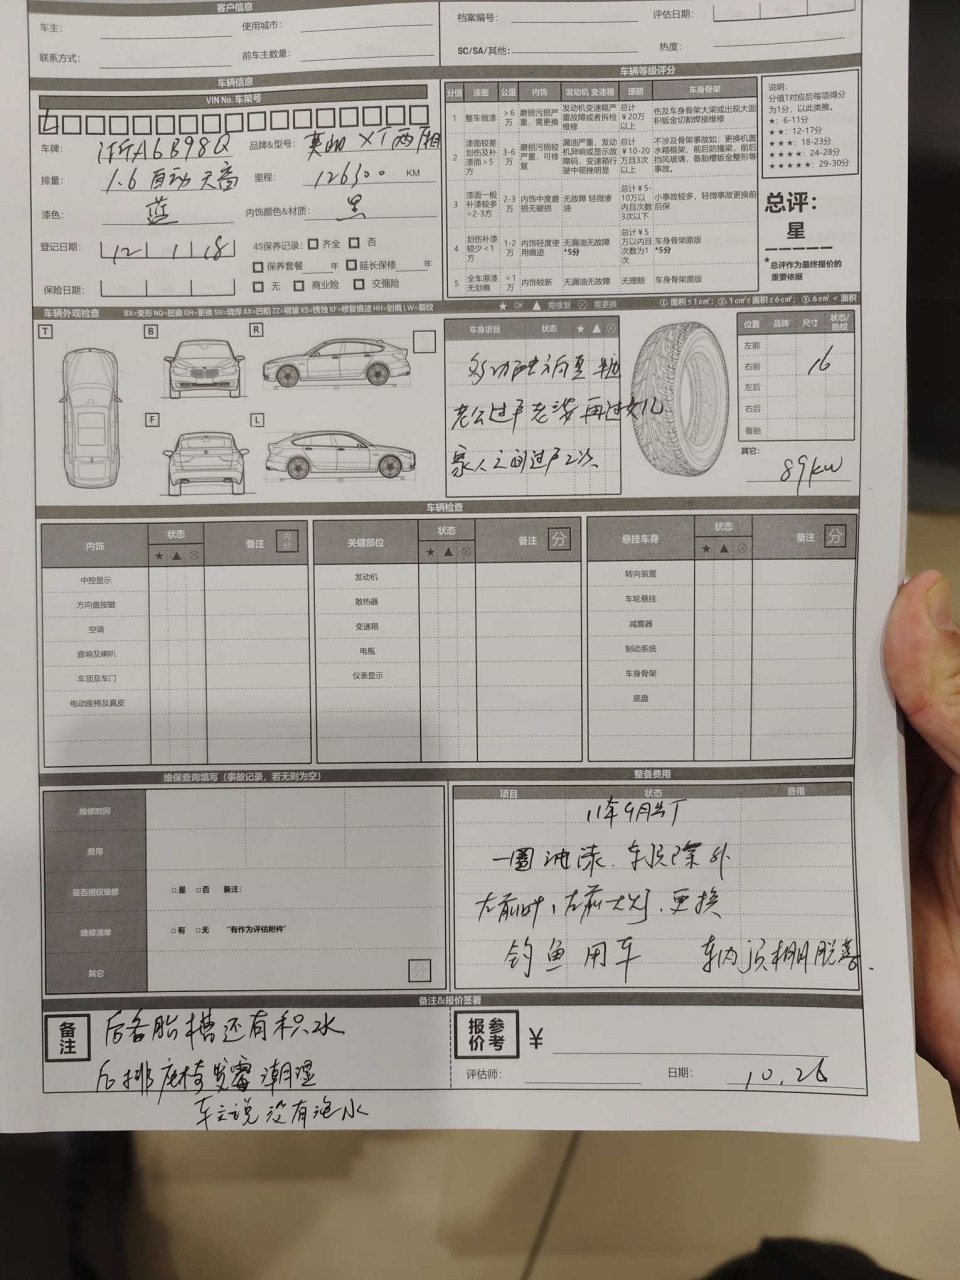 客户信息
车主：
使用城市：
档案编号：
评估日期：
联系方式：
前车主数量：
SC/SA/其他：
热度：
车辆信息
VIN No. 车架号
L
车牌：
浙A6B98Q
品牌&型号：
英朗 XT 两厢
排量：
1.6 自动 天窗
里程：
126300 KM
漆色：
蓝
内饰颜色&材质：
黑
登记日期：
12 1 18
4S保养记录： 齐全 否
保养套餐 年 延长保修 年
保险日期：
无 商业险 交强险
车辆等级评分
分值 漆面 公里 内饰 发动机 变速箱 理赔 车身骨架
1 整车做漆 >6万 磨损污损严重，需更换 发动机变速箱严重故障或者拆检维修 总计￥20万以上 伤及车身骨架大梁或出现大面积钣金切割焊接维修
2 漆面较差划伤及补漆面>5方 3-6万 磨损污损较严重，可修复 漏油严重，发动机异响或显示故障码，变速箱行驶中顿挫明显 总计￥10-20万且3次以上 不涉及骨架事故如：更换机盖水箱框架，前后防撞梁，前后挡风玻璃，备胎槽钣金整形等事故。
3 漆面一般补漆较多=2-3方 2-3万 内饰中度磨损无破损 无故障 轻微渗油 总计￥5-10万以内且次数3次以下 小事故较多，轻微事故更换前后保
4 划伤补漆较少<1方 1-2万 内饰轻度使用痕迹 无漏油无故障 *5分 总计￥5万以内且次数为1次 车身骨架原版 *5分
5 全车原漆无划痕 <1万 内饰较新 无漏油无故障 无理赔 车身骨架原版
说明：
分值1对应后每项得分为1分，以此类推。
★：6-11分
★★：12-17分
★★★：18-23分
★★★★：24-28分
★★★★★：29-30分
总评：
星
*总评作为最终报价的重要依据
车辆外观检查
BX=变形 NQ=扭曲 GH=更换 SH=烧焊 AX=凹陷 ZZ=褶皱 XS=锈蚀 XF=修复痕迹 HH=划痕 LW=裂纹
★ OK ▲ 需修复 ⊗ 需更换
①. 面积≤1c㎡；②. 1c㎡≤面积≤6c㎡；③. 6c㎡<面积
T B R
F L
车身项目 状态 ★ ▲ ⊗
多功能方向盘 半皮
老公过户老婆 再过女儿
家人之间过户2次
位置 品牌 尺寸 状态/胎纹
左前
右前
16
左后
右后
备胎
其它：
89kw
车辆检查
内饰 状态 备注 内分
★ ▲ ⊗
中控显示
方向盘按键
空调
音响及喇叭
车顶及车门
电动座椅及真皮
关键部位 状态 备注 分
★ ▲ ⊗
发动机
散热器
变速箱
电瓶
仪表显示
悬挂车身 状态 备注 分
★ ▲ ⊗
转向装置
车轮悬挂
减震器
制动系统
车身骨架
底盘
维保查询填写（事故记录，若无则为空）
维修时间
费用
是否授权维修 □是 □否 备注：
维修清单 □有 □无 "有作为评估附件"
其它
分
整备费用
项目 状态 费用
11年9月出厂
一圈油漆. 车顶除外
左前叶，左前大灯. 更换
钓鱼用车 车内顶棚脱落.
备注&报价签署
备注
后备胎槽还有积水
后排座椅发霉潮湿
车主说没有泡水
报价参考 ￥
评估师：
日期：
10.26